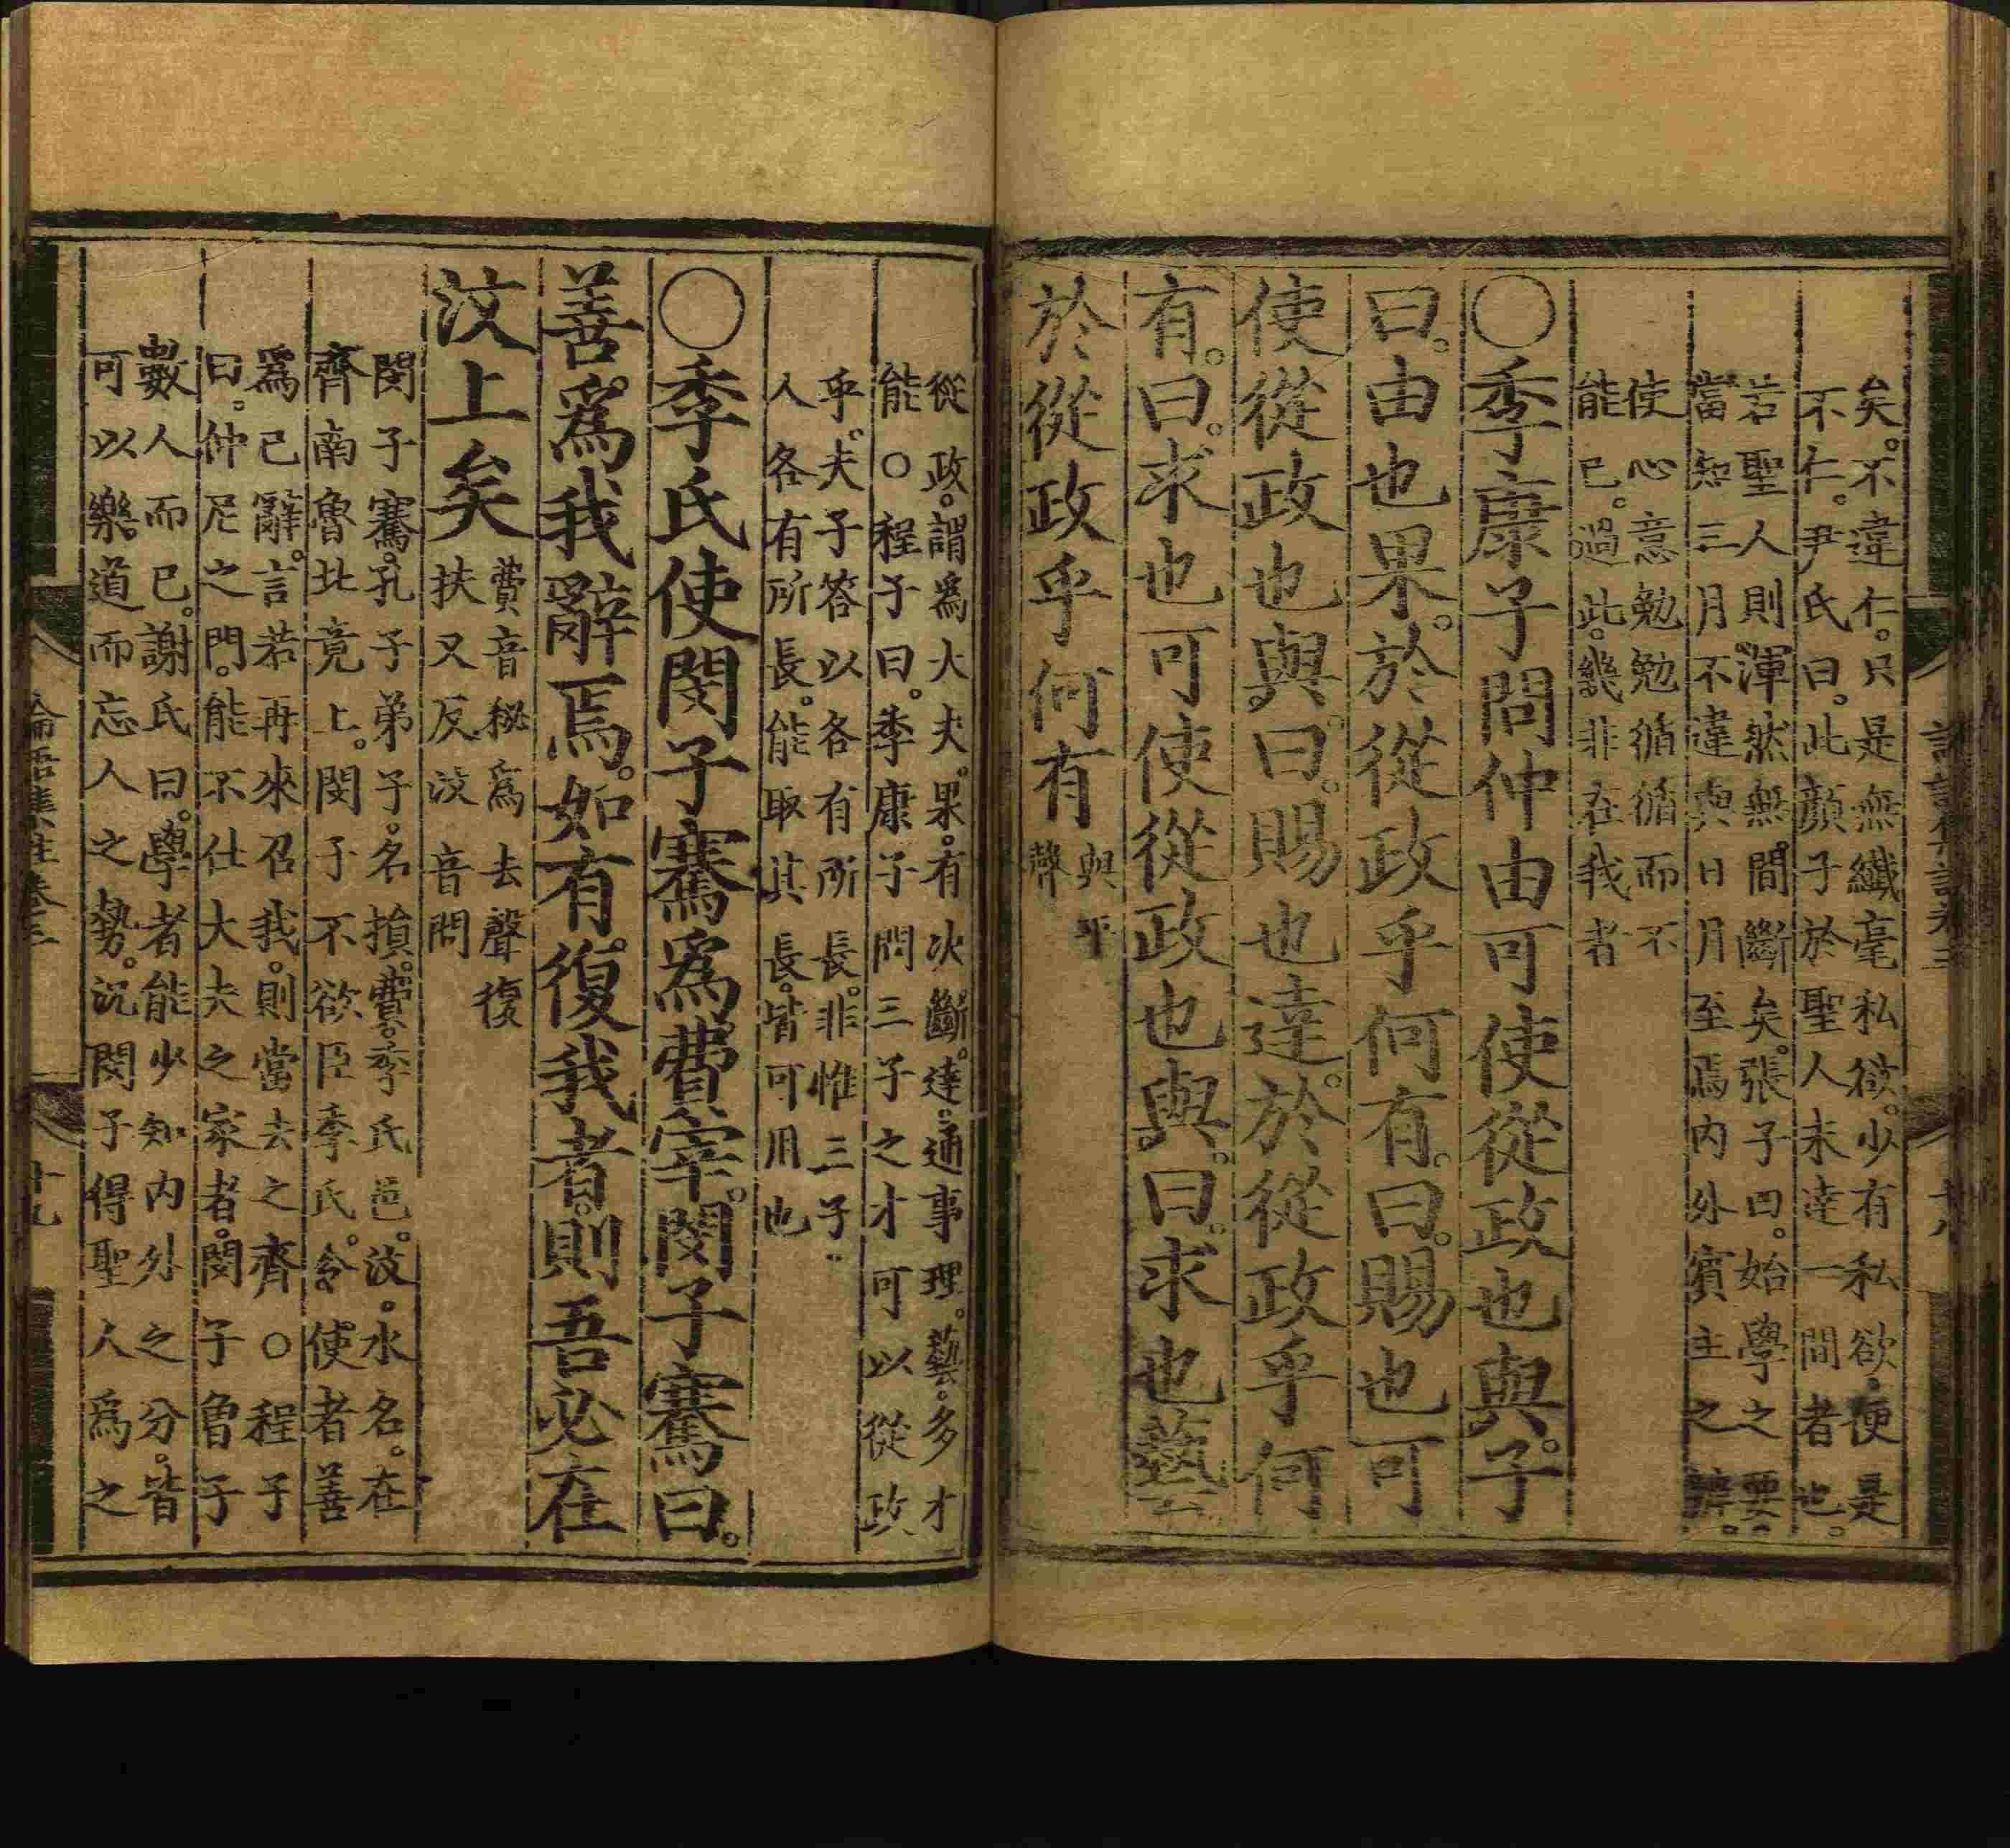 矣。不違仁。只是無纖毫私欲。少有私欲。便是
不仁。尹氏曰。此顏子於聖人未達一間者也。
若聖人則渾然無間斷矣。張子曰。始學之要
當知三月不違與日月至焉内外賓主之辯。
使心意勉勉循循而不
能已。過此。幾非在我者
○季康子問仲由可使從政也與。子
曰。由也果。於從政乎何有。曰。賜也可
使從政也與。曰。賜也達。於從政乎何
有。曰。求也可使從政也與。曰。求也藝
於從政乎何有
與平
聲
從政。謂爲大夫。果。有决斷。達。通事理。藝。多才
能○程子曰。季康子問三子之才可以從政
乎。夫子答以各有所長。非惟三子。
人各有所長。能取其長。皆可用也
○季氏使閔子騫爲費宰。閔子騫曰。
善爲我辭焉。如有復我者。則吾必在
汶上矣
費音秘爲去聲復
扶又反汶音問
閔子騫。孔子弟子。名損。費。季氏邑。汶。水名。在
齊南魯北竟上。閔子不欲臣季氏。令使者善
爲己辭。言若再來召我。則當去之齊○程子
曰。仲尼之門。能不仕大夫之家者。閔子曾子
數人而已。謝氏曰。學者能少知内外之分。皆
可以樂道而忘人之勢。況閔子得聖人爲之
論語集註卷三
十九